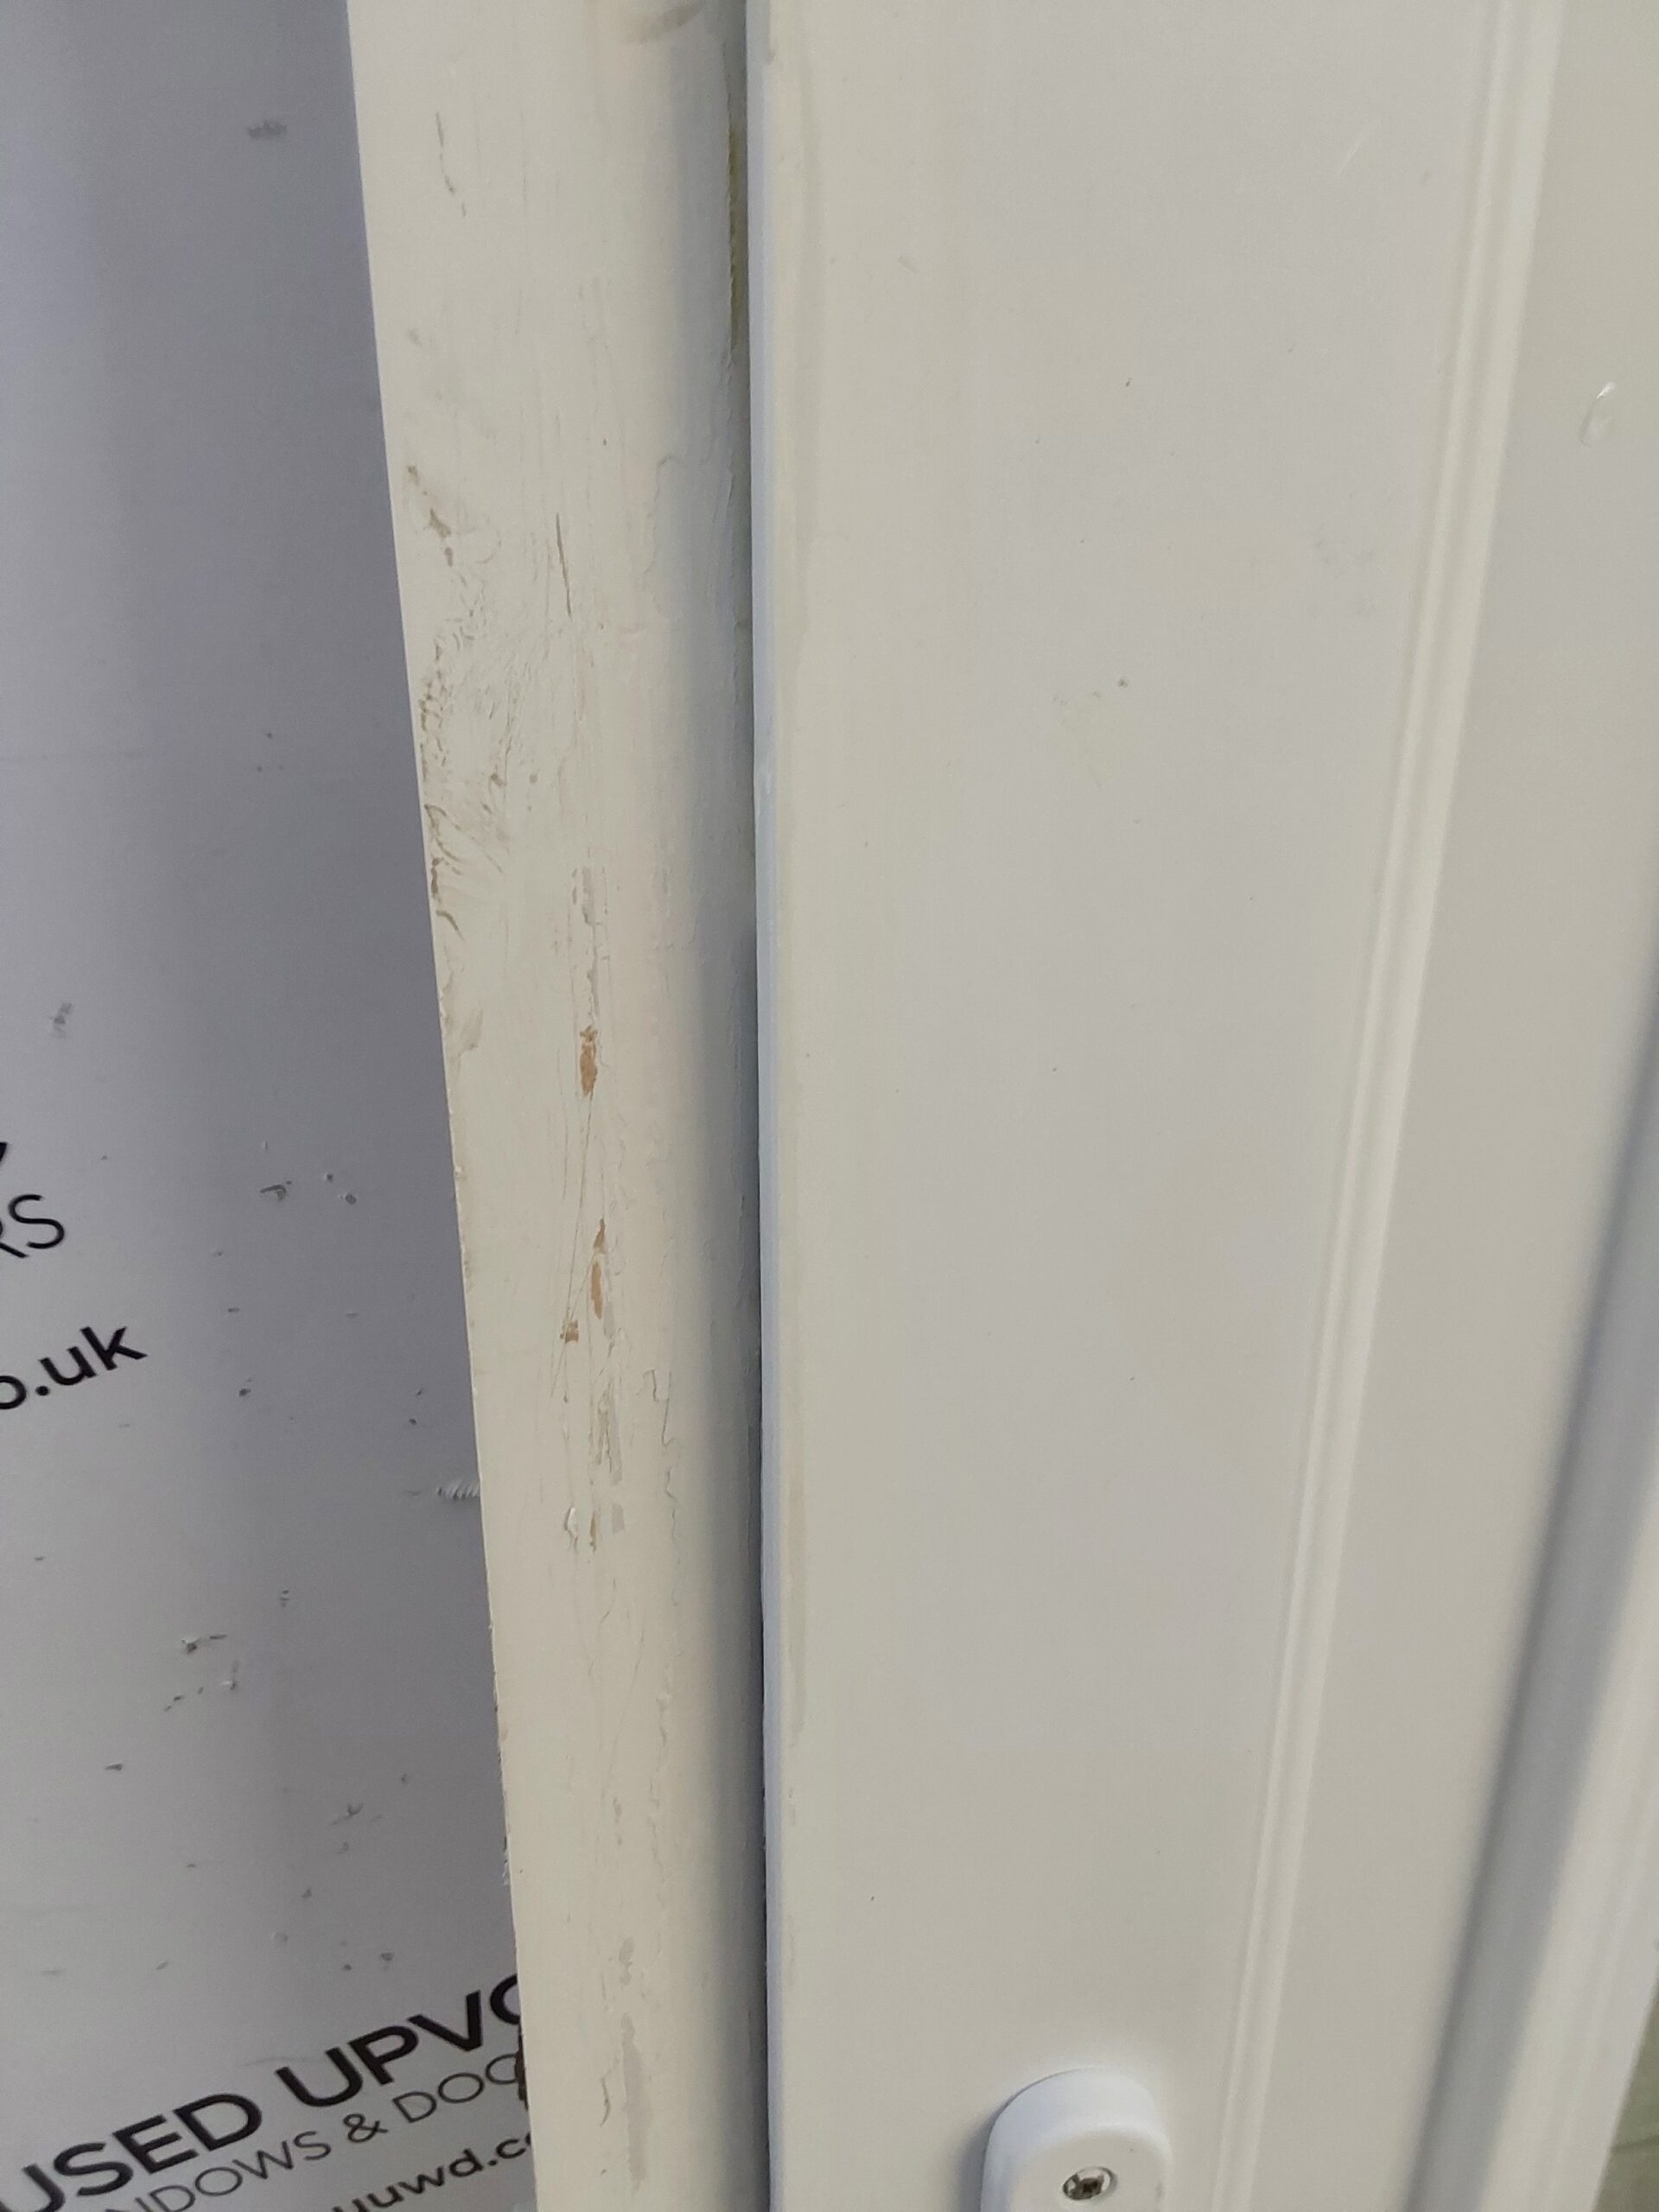 RS
o.uk
USED UPVC
NDOWS & DOO
uuwd.co